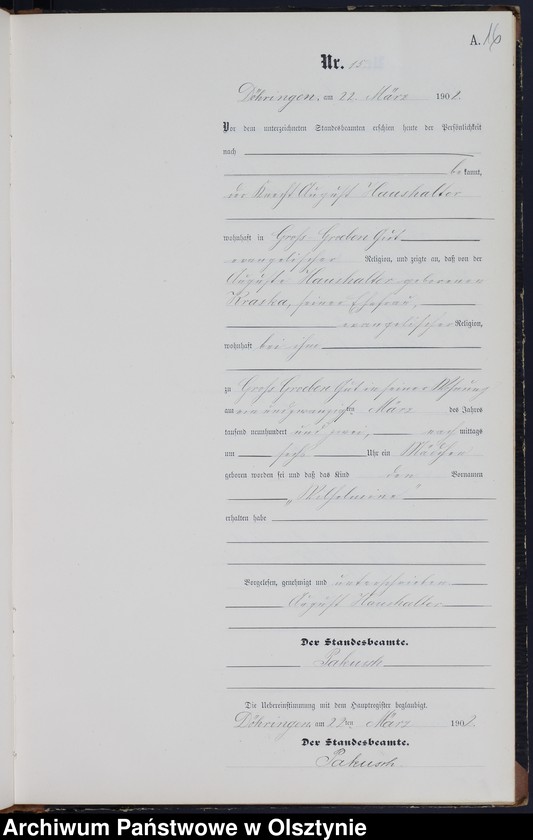 A. 16
Nr. 15.
Döhringen, am 22 März 1902.
Vor dem unterzeichneten Standesbeamten erschien heute der Persönlichkeit
nach
bekannt,
der Knecht August Haushalter
wohnhaft in Groß Groeben Gut
evangelischer Religion, und zeigte an, daß von der
Auguste Haushalter geborenen
Kraska, seiner Ehefrau,
evangelischer Religion,
wohnhaft bei ihm
zu Groß Groeben Gut in seiner Wohnung
am ein und zwanzigsten März des Jahres
tausend neunhundert und zwei, nachmittags
um sechs Uhr ein Mädchen
geboren worden sei und daß das Kind den Vornamen
„Wilhelmine"
erhalten habe
Vorgelesen, genehmigt und unterschrieben
August Haushalter
Der Standesbeamte.
Pakusch
Die Uebereinstimmung mit dem Hauptregister beglaubigt.
Döhringen, am 22ten März 1902.
Der Standesbeamte.
Pakusch
Archiwum Państwowe w Olsztynie